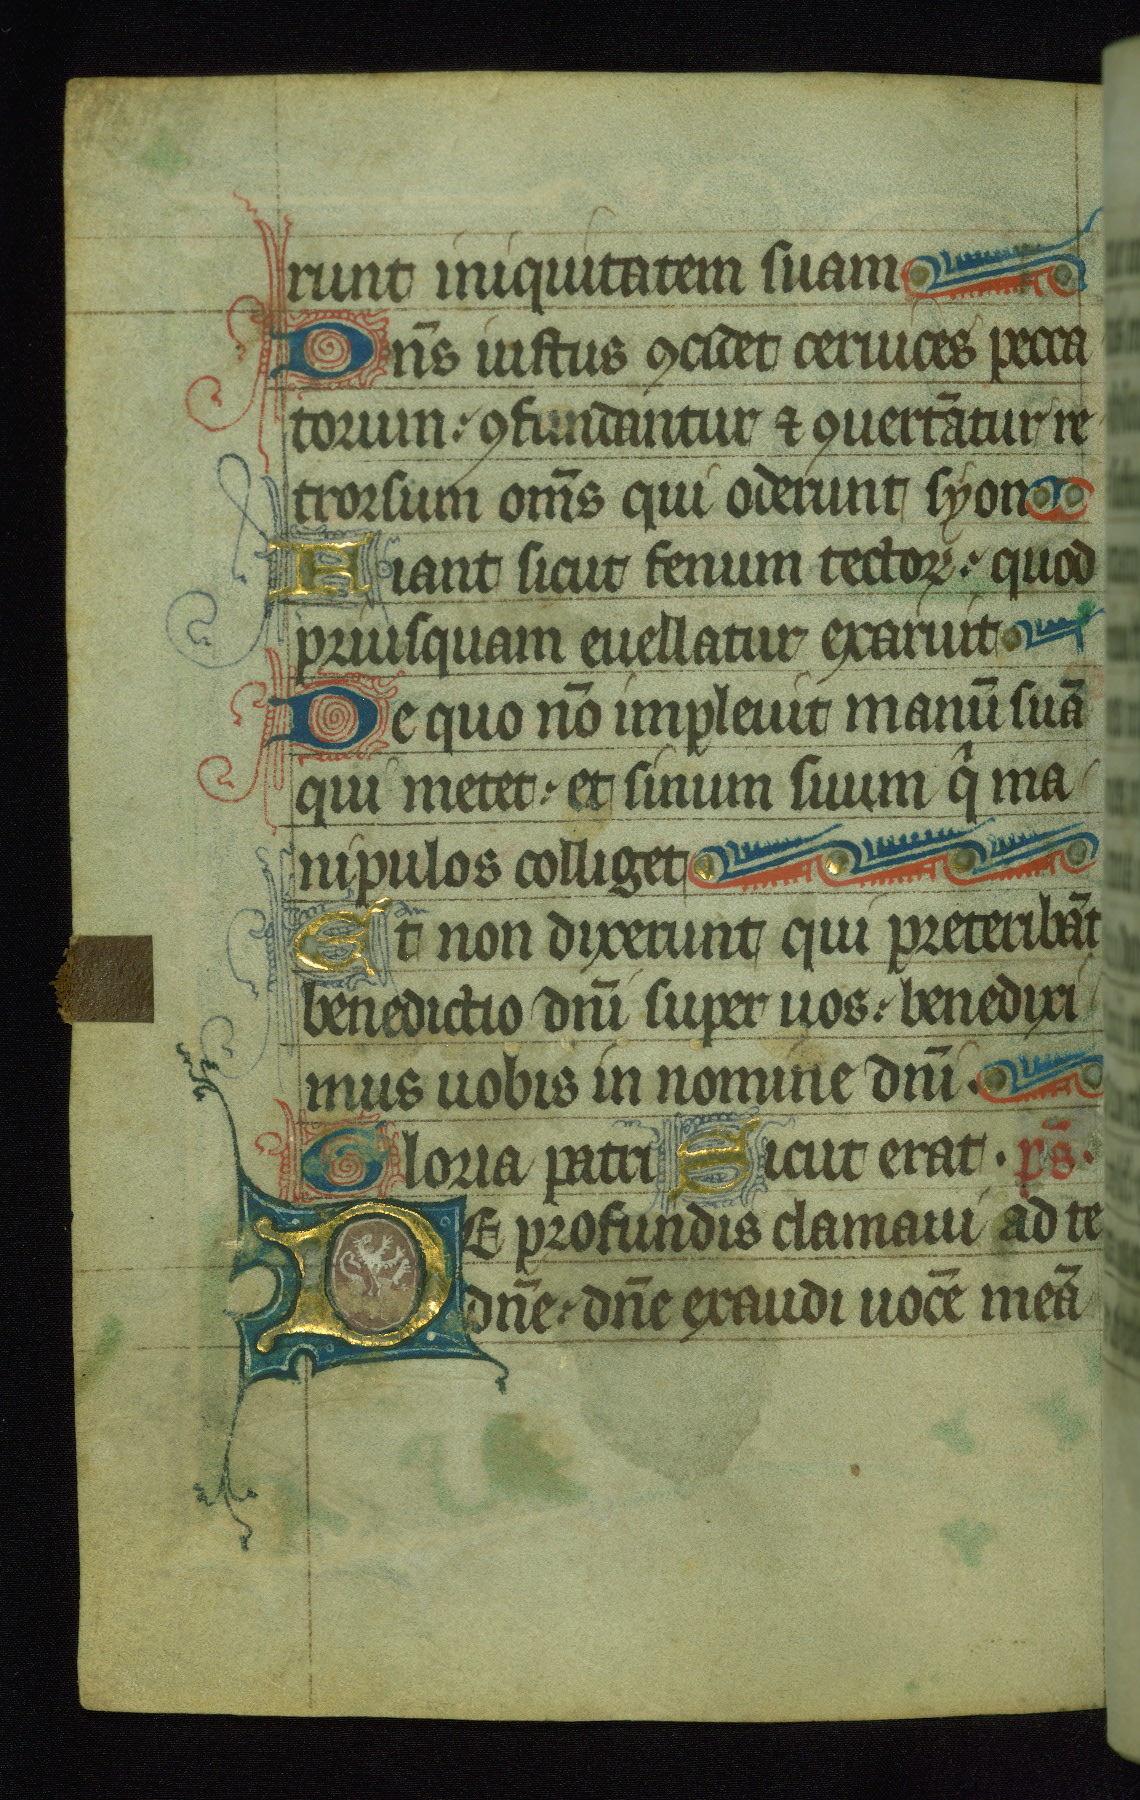 runt iniquitatem suam
Dn̄s iustus ꝯcidet ceruices pecca
torum: ꝯfundantur ⁊ ꝯuertātur re
trorsum om̄s qui oderunt syon
Fiant sicut fenum tectoꝝ: quod
priusquam euellatur exaruit
De quo nō impleuit manū suā
qui metet: et sinum suum qͥ ma
nipulos colliget
Et non dixerunt qui preteribāt
benedictio dnī super uos: benedixi
mus uobis in nomine dnī.
Gloria patri Sicut erat. p̄s.
DE profundis clamaui ad te
dn̄e: dn̄e exaudi uocē meā